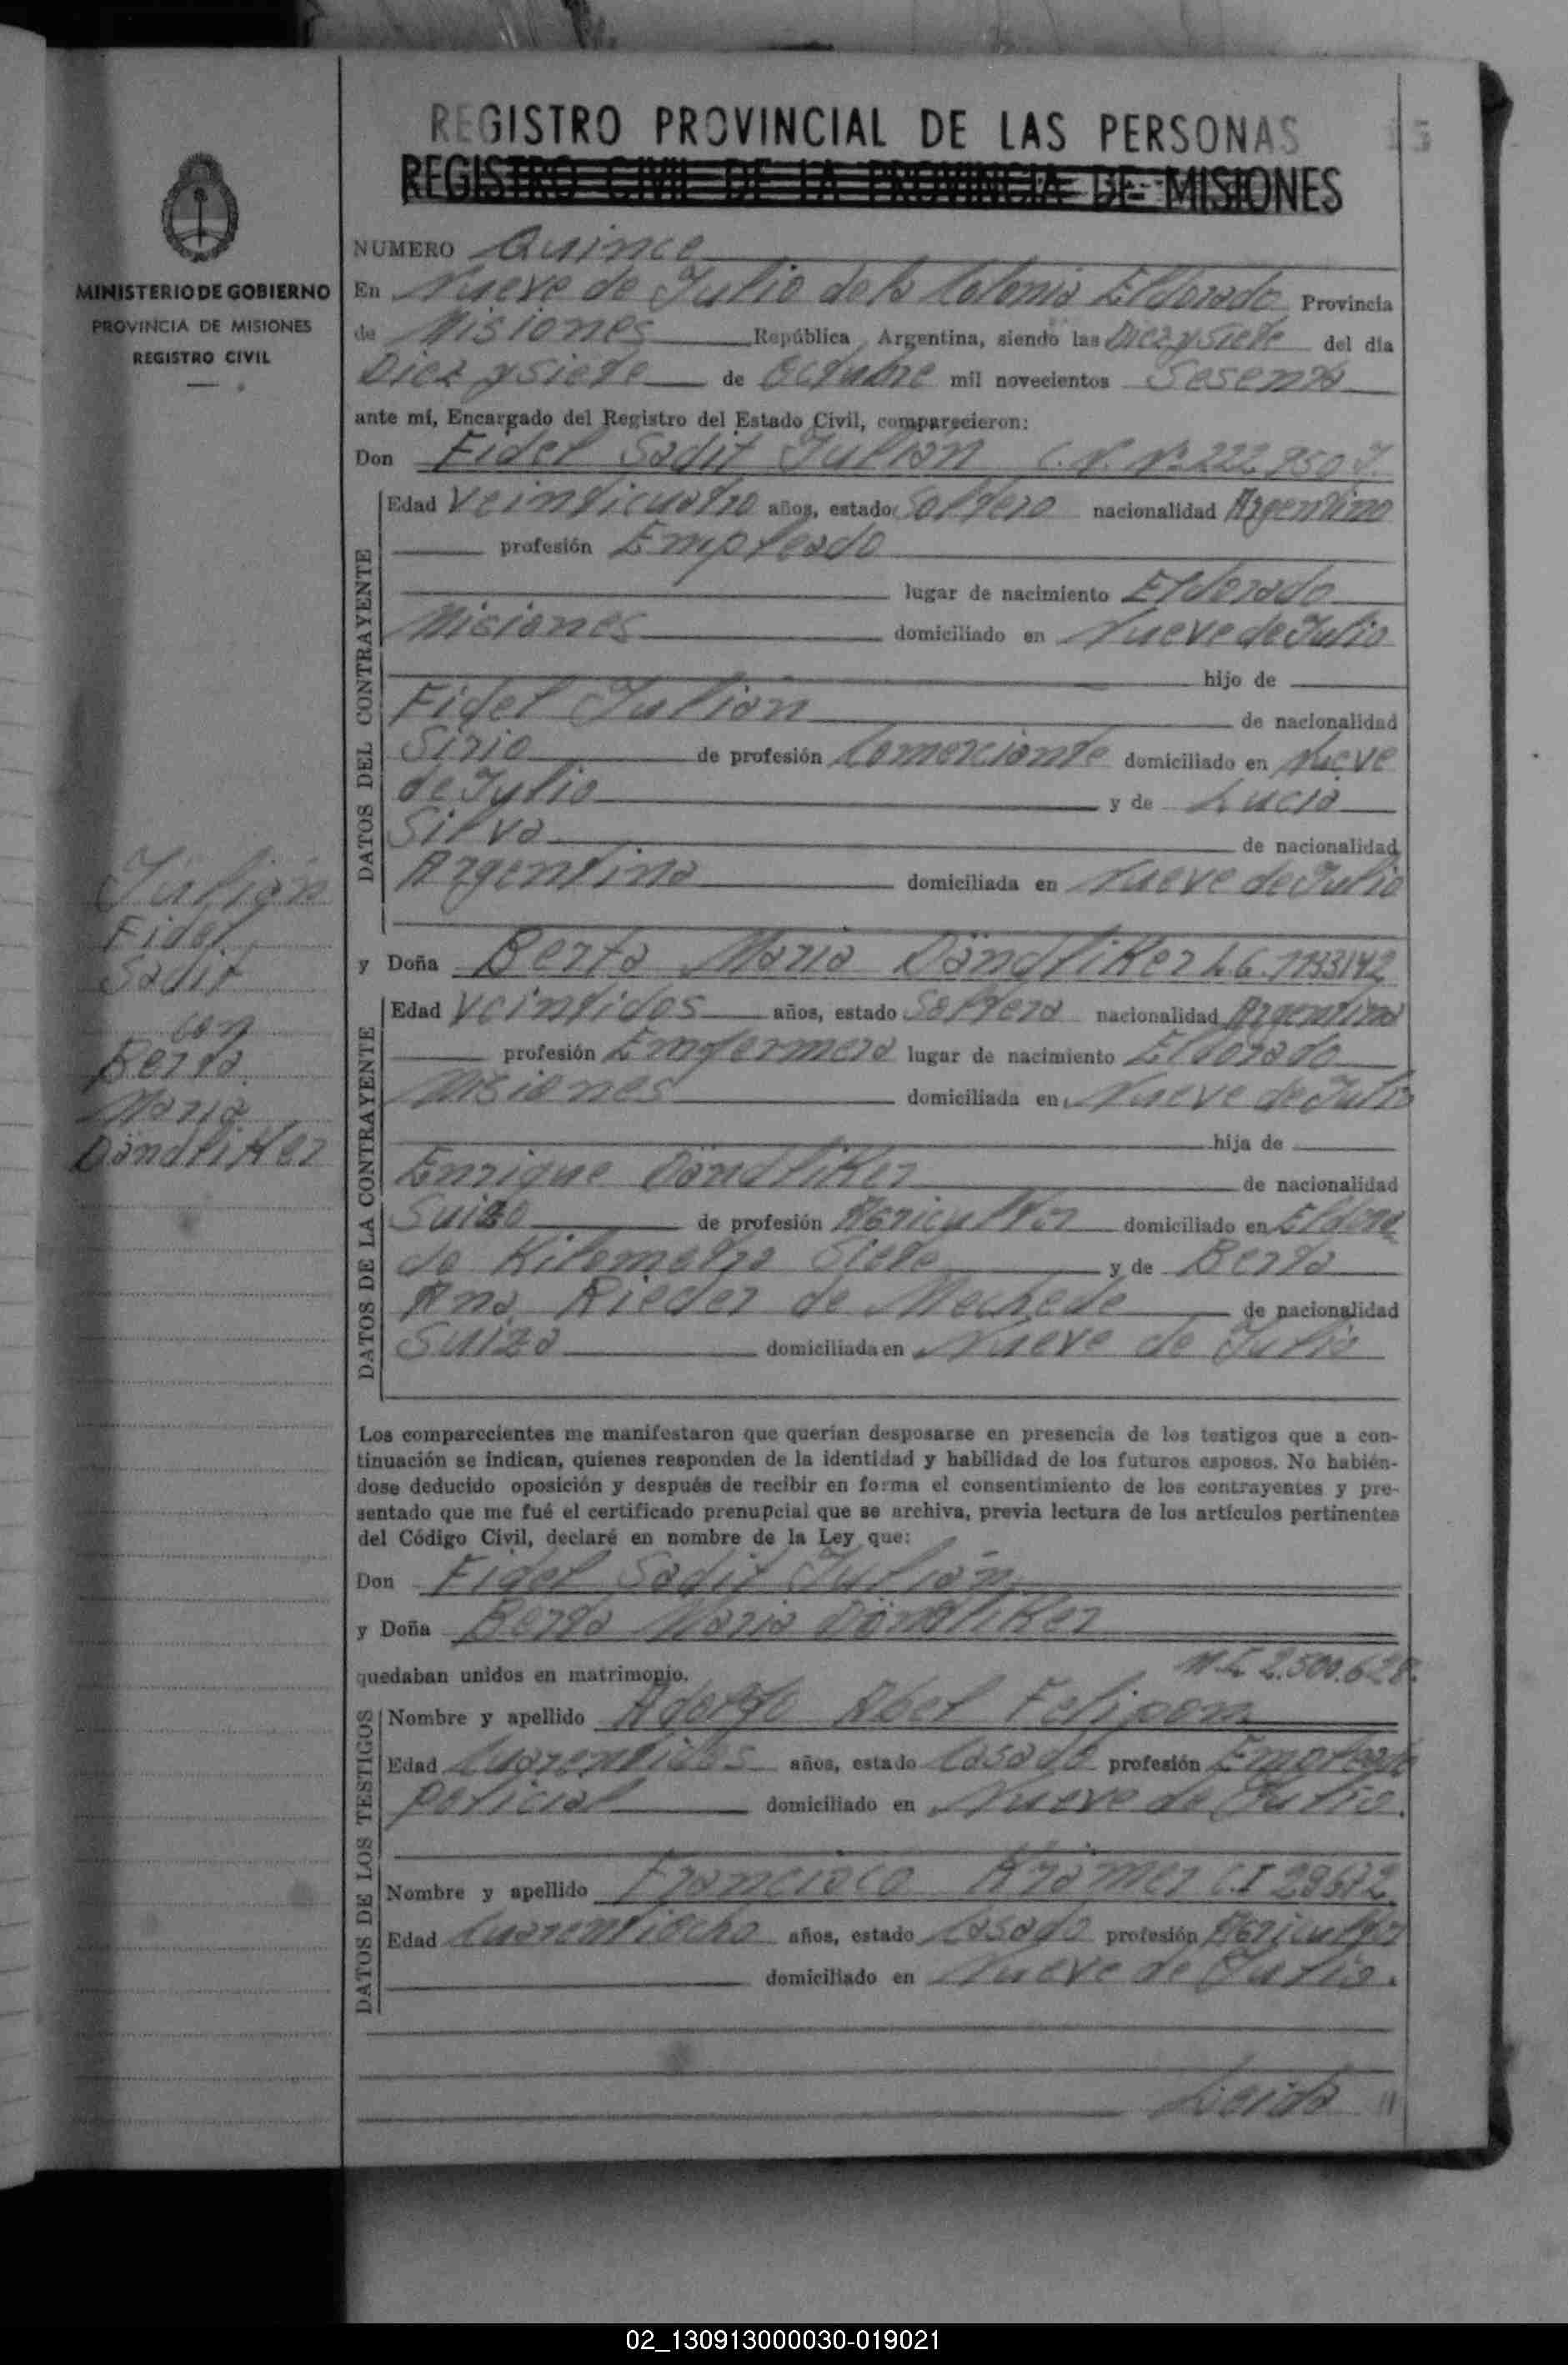 REGISTRO PROVINCIAL DE LAS PERSONAS
15
REGISTRO CIVIL DE LA PROVINCIA DE MISIONES
MINISTERIO DE GOBIERNO
PROVINCIA DE MISIONES
REGISTRO CIVIL
NUMERO Quince
En Nueve de Julio de la Colonia Eldorado Provincia
de Misiones República Argentina, siendo las Diez y siete del día
Diez y siete de Octubre mil novecientos Sesenta
ante mí, Encargado del Registro del Estado Civil, comparecieron:
Don Fidel Sadit Julián
Edad Veinticuatro años, estado Soltero nacionalidad Argentino
profesión Empleado
lugar de nacimiento Eldorado
Misiones domiciliado en Nueve de Julio
hijo de
Fidel Julián de nacionalidad
Sirio de profesión Comerciante domiciliado en Nueve
de Julio y de Lucia
Silva de nacionalidad
Argentina domiciliada en Nueve de Julio
DATOS DEL CONTRAYENTE
Julián
Fidel
Sadit
con
Berta
Maria
Dändliker
y Doña Berta Maria Dändliker
Edad Veintidos años, estado Soltera nacionalidad Argentina
profesión Emfermera lugar de nacimiento Eldorado
Misiones domiciliada en Nueve de Julio
hija de
Enrique Dändliker de nacionalidad
Suizo de profesión Agricultor domiciliado en Eldora
do Kilometro Siete y de Berta
Ana Rieder de Mechede de nacionalidad
Suiza domiciliada en Nueve de Julio
DATOS DE LA CONTRAYENTE
Los comparecientes me manifestaron que querían desposarse en presencia de los testigos que a con-
tinuación se indican, quienes responden de la identidad y habilidad de los futuros esposos. No habién-
dose deducido oposición y después de recibir en forma el consentimiento de los contrayentes y pre-
sentado que me fué el certificado prenupcial que se archiva, previa lectura de los artículos pertinentes
del Código Civil, declaré en nombre de la Ley que:
Don Fidel Sadit Julián
y Doña Berta Maria Dändliker
quedaban unidos en matrimonio. M.I. 2.500.628.
Nombre y apellido Adolfo Abel Felipon
Edad Cuarentidos años, estado Casado profesión Empleado
Policial domiciliado en Nueve de Julio.
Nombre y apellido Francisco Krämer C.I 29612
Edad Cuarentiocho años, estado Casado profesión Agricultor
domiciliado en Nueve de Julio.
DATOS DE LOS TESTIGOS
Leida //
02_130913000030-019021